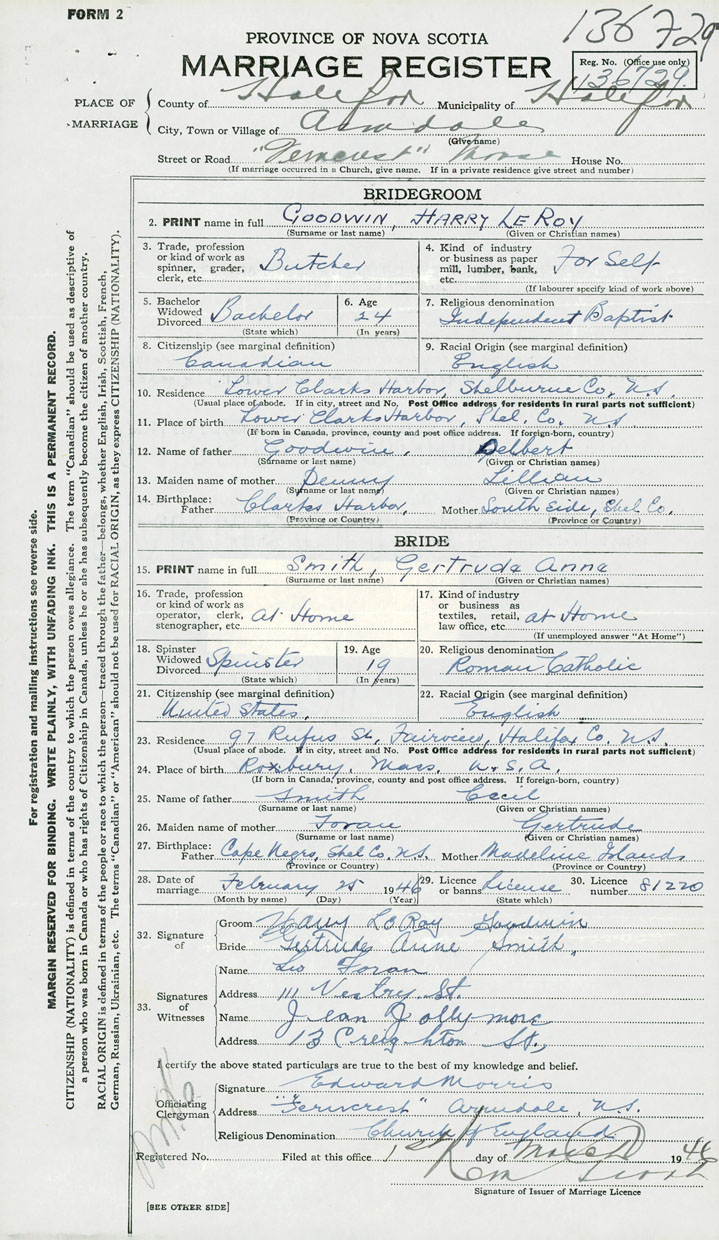 FORM 2
136729
PROVINCE OF NOVA SCOTIA
MARRIAGE REGISTER
Reg. No. (Office use only)
136729
PLACE OF MARRIAGE
County of Halifax Municipality of Halifax
City, Town or Village of Armdale
(Give name)
Street or Road "Ferncrest" House No.
(If marriage occurred in a Church, give name. If in a private residence give street and number)
BRIDEGROOM
2. PRINT name in full GOODWIN, HARRY LE ROY
(Surname or last name) (Given or Christian names)
3. Trade, profession or kind of work as spinner, grader, clerk, etc. Butcher
4. Kind of industry or business as paper mill, lumber, bank, etc. For Self
(If labourer specify kind of work above)
5. Bachelor Widowed Divorced Bachelor (State which)
6. Age 24 (In years)
7. Religious denomination Independent Baptist
8. Citizenship (see marginal definition) Canadian
9. Racial Origin (see marginal definition) English
10. Residence Lower Clarks Harbor, Shelburne Co, N.S.
(Usual place of abode. If in city, street and No. Post Office address for residents in rural parts not sufficient)
11. Place of birth Lower Clarks Harbor, Shel. Co. N.S
(If born in Canada, province, county and post office address. If foreign-born, country)
12. Name of father Goodwin, Delbert
(Surname or last name) (Given or Christian names)
13. Maiden name of mother Penny Lillian
(Surname or last name) (Given or Christian names)
14. Birthplace: Father Clarks Harbor, Mother South Side, Shel Co.
(Province or Country) (Province or Country)
BRIDE
15. PRINT name in full Smith, Gertrude Anne
(Surname or last name) (Given or Christian names)
16. Trade, profession or kind of work as operator, clerk, stenographer, etc. At Home
17. Kind of industry or business as textiles, retail, law office, etc. at Home
(If unemployed answer "At Home")
18. Spinster Widowed Divorced Spinster (State which)
19. Age 19 (In years)
20. Religious denomination Roman Catholic
21. Citizenship (see marginal definition) United States,
22. Racial Origin (see marginal definition) English
23. Residence 97 Rufus St, Fairview, Halifax Co. N.S.
(Usual place of abode. If in city, street and No. Post Office address for residents in rural parts not sufficient)
24. Place of birth Roxbury, Mass. U.S.A.
(If born in Canada, province, county and post office address. If foreign-born, country)
25. Name of father Smith Cecil
(Surname or last name) (Given or Christian names)
26. Maiden name of mother Foran Gertrude
(Surname or last name) (Given or Christian names)
27. Birthplace: Father Cape Negro, Shel Co. N.S. Mother Madeline Islands
(Province or Country) (Province or Country)
28. Date of marriage February 25 1946
(Month by name) (Day) (Year)
29. Licence or banns License (State which)
30. Licence number 81220
32. Signature of
Groom Harry LeRoy Goodwin
Bride Gertrude Anne Smith,
33. Signatures of Witnesses
Name Leo Foran
Address 111 Vestry St.
Name Jean Jollymore
Address 13 Creighton St.,
I certify the above stated particulars are true to the best of my knowledge and belief.
Officiating Clergyman
Signature Edward Morris
Address "Ferncrest" Armdale, N.S.
Religious Denomination Church of England
Registered No. Filed at this office 1st day of March 1946
Signature of Issuer of Marriage Licence
[SEE OTHER SIDE]
For registration and mailing instructions see reverse side.
MARGIN RESERVED FOR BINDING. WRITE PLAINLY, WITH UNFADING INK. THIS IS A PERMANENT RECORD.
CITIZENSHIP (NATIONALITY) is defined in terms of the country to which the person owes allegiance. The term "Canadian" should be used as descriptive of
a person who was born in Canada or who has rights of Citizenship in Canada, unless he or she has subsequently become the citizen of another country.
RACIAL ORIGIN is defined in terms of the people or race to which the person—traced through the father—belongs, whether English, Irish, Scottish, French,
German, Russian, Ukrainian, etc. The terms "Canadian" or "American" should not be used for RACIAL ORIGIN, as they express CITIZENSHIP (NATIONALITY).